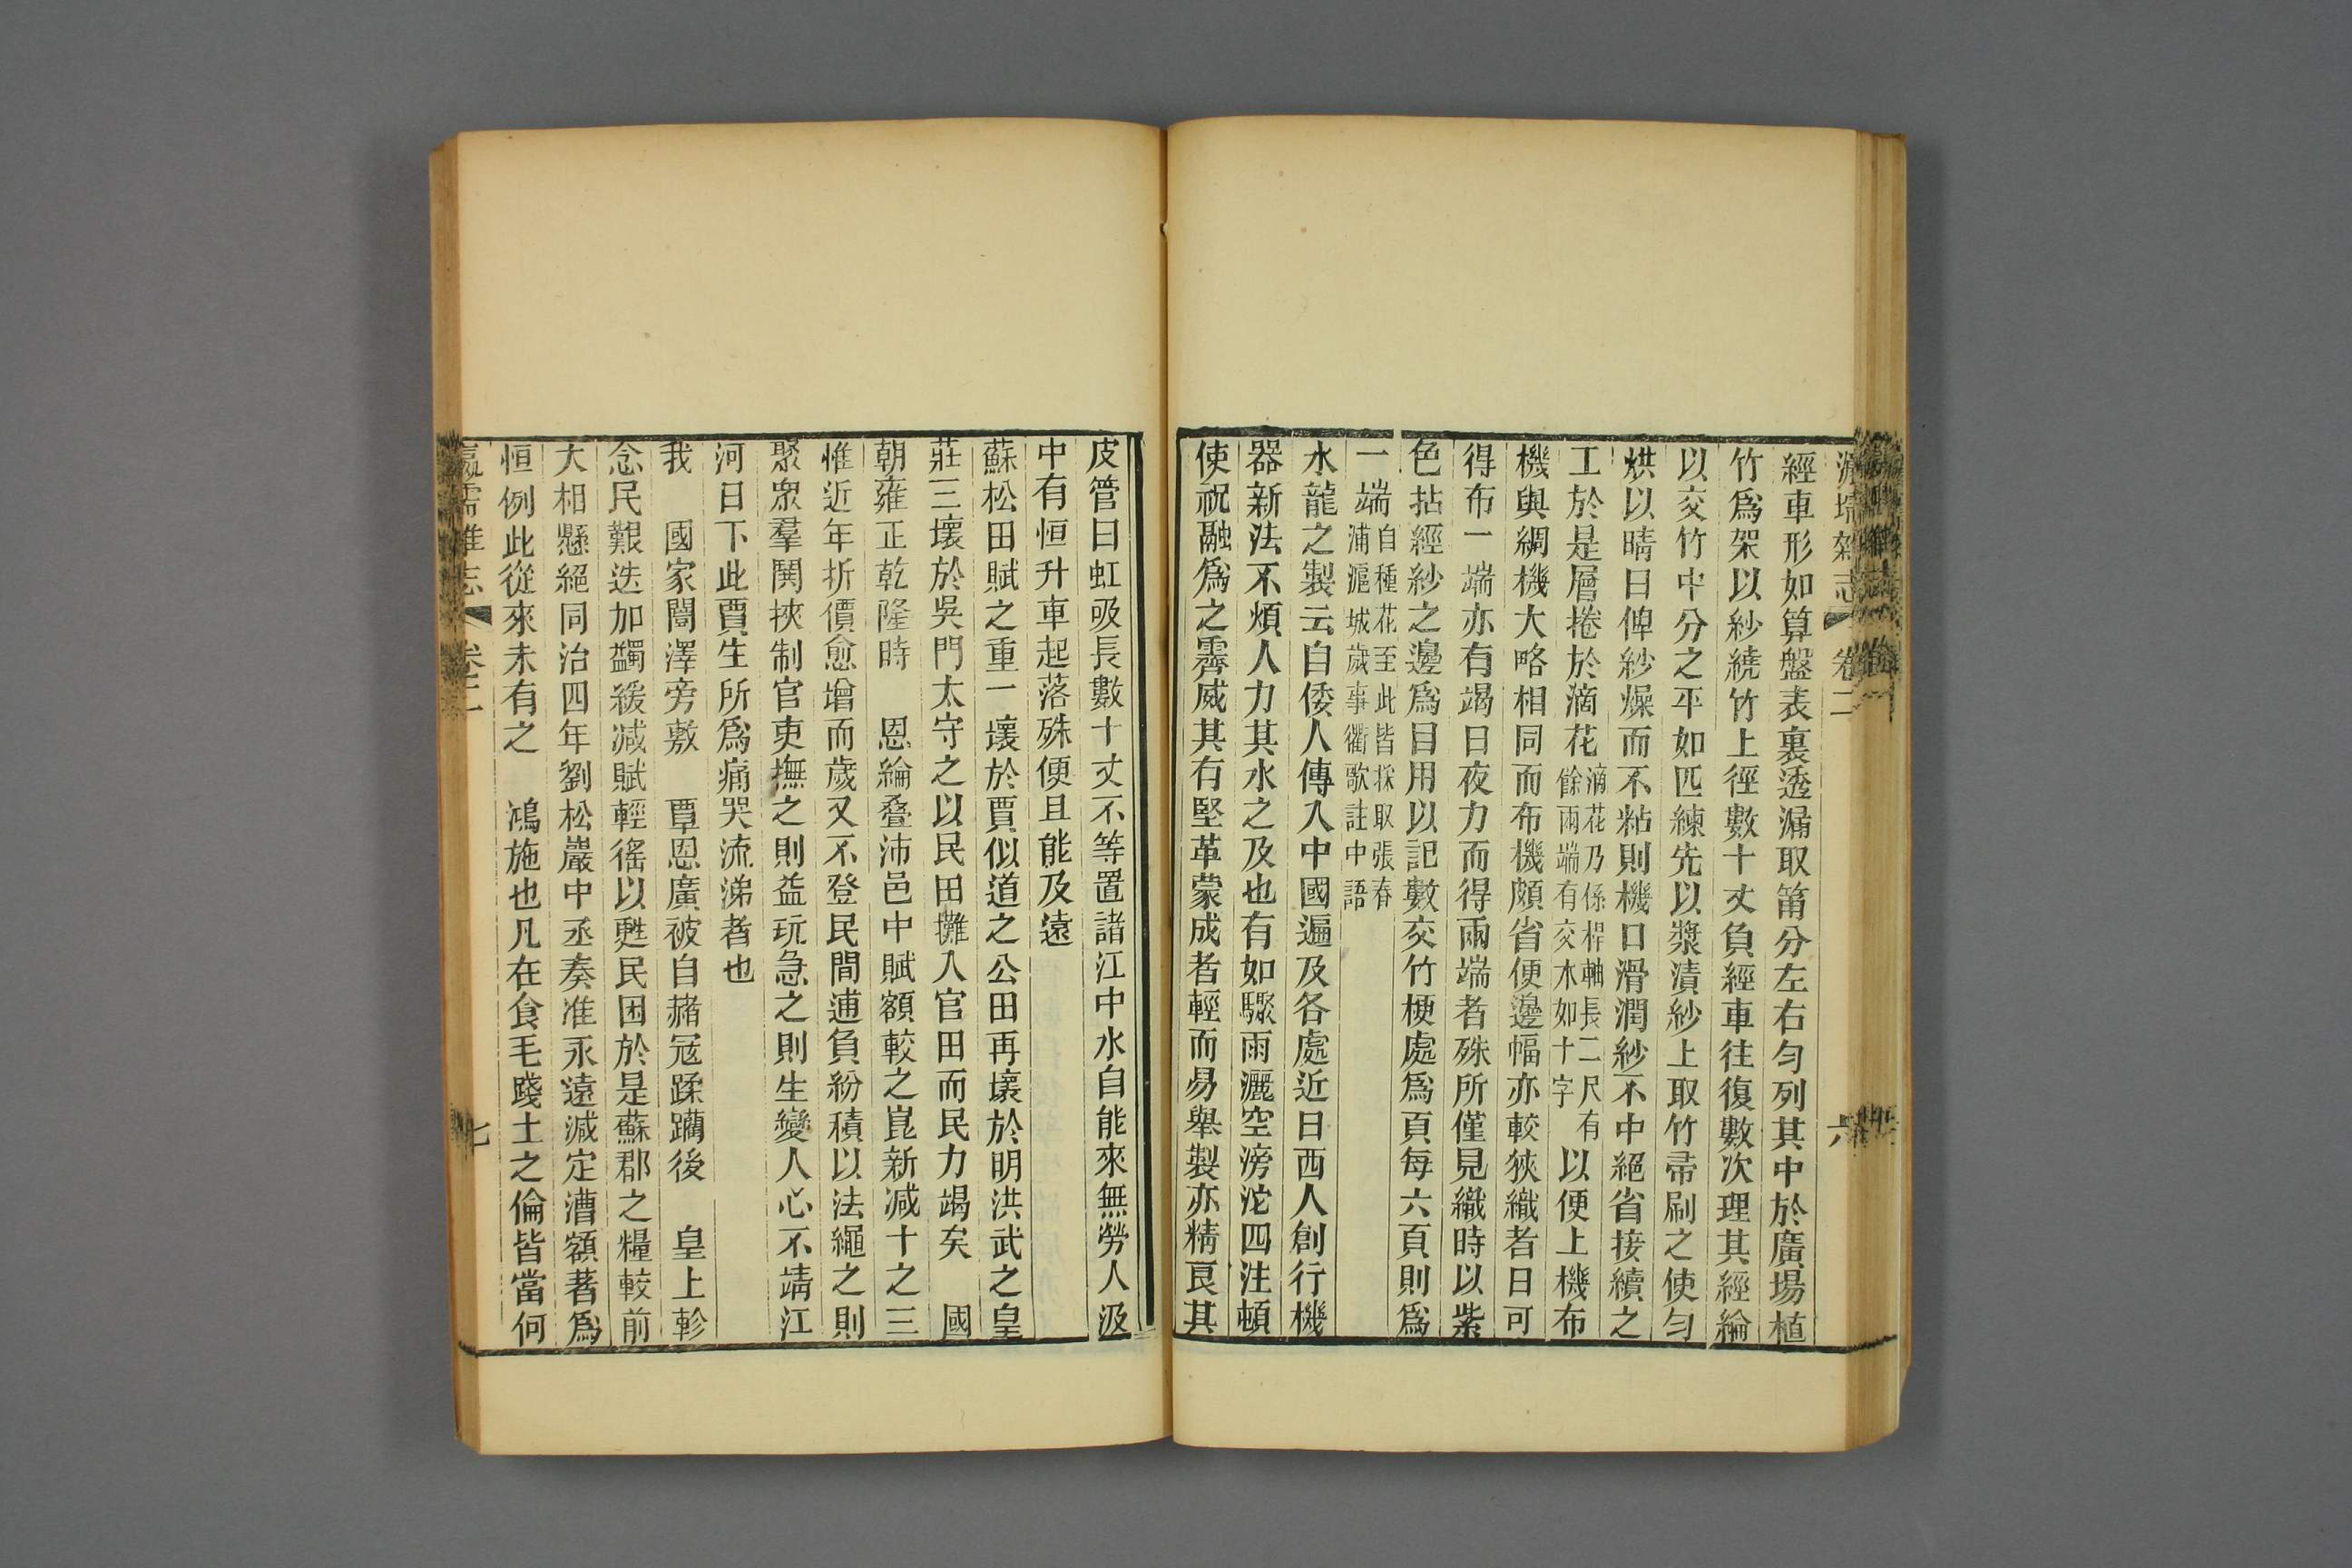 瀛壖雜志 卷二 六
經車形如算盤表裏透漏取筩分左右勻列其中於廣場植
竹爲架以紗繞竹上徑數十丈負經車往復數次理其經綸
以交竹中分之平如匹練先以漿漬紗上取竹帚刷之使勻
烘以晴日俾紗燥而不粘則機口滑潤紗不中絕省接續之
工於是層捲於滴花滴花乃係桿軸長二尺有餘兩端有交木如十字以便上機布
機與綢機大略相同而布機頗省便邊幅亦較狹織者日可
得布一端亦有竭日夜力而得兩端者殊所僅見織時以紫
色拈經紗之邊爲目用以記數交竹梗處爲頁每六頁則爲
一端自種花至此皆採取張春浦滬城歲事衢歌註中語
水龍之製云自倭人傳入中國遍及各處近日西人創行機
器新法不煩人力其水之及也有如驟雨灑空滂沱四注頓
使祝融爲之霽威其有堅革蒙成者輕而易舉製亦精良其
皮管曰虹吸長數十丈不等置諸江中水自能來無勞人汲
中有恒升車起落殊便且能及遠
蘇松田賦之重一壞於賈似道之公田再壞於明洪武之皇
莊三壞於吳門太守之以民田攤入官田而民力竭矣 國
朝雍正乾隆時 恩綸疊沛邑中賦額較之崑新减十之三
惟近年折價愈增而歲又不登民間逋負紛積以法繩之則
聚眾羣鬨挾制官吏撫之則益玩急之則生變人心不靖江
河日下此賈生所爲痛哭流涕者也
我 國家闓澤旁敷 覃恩廣被自赭冦蹂躪後 皇上軫
念民艱迭加蠲緩减賦輕徭以甦民困於是蘇郡之糧較前
大相懸絕同治四年劉松巖中丞奏准永遠減定漕額著爲
恒例此從來未有之 鴻施也凡在食毛踐土之倫皆當何
瀛壖雜志 卷二 七